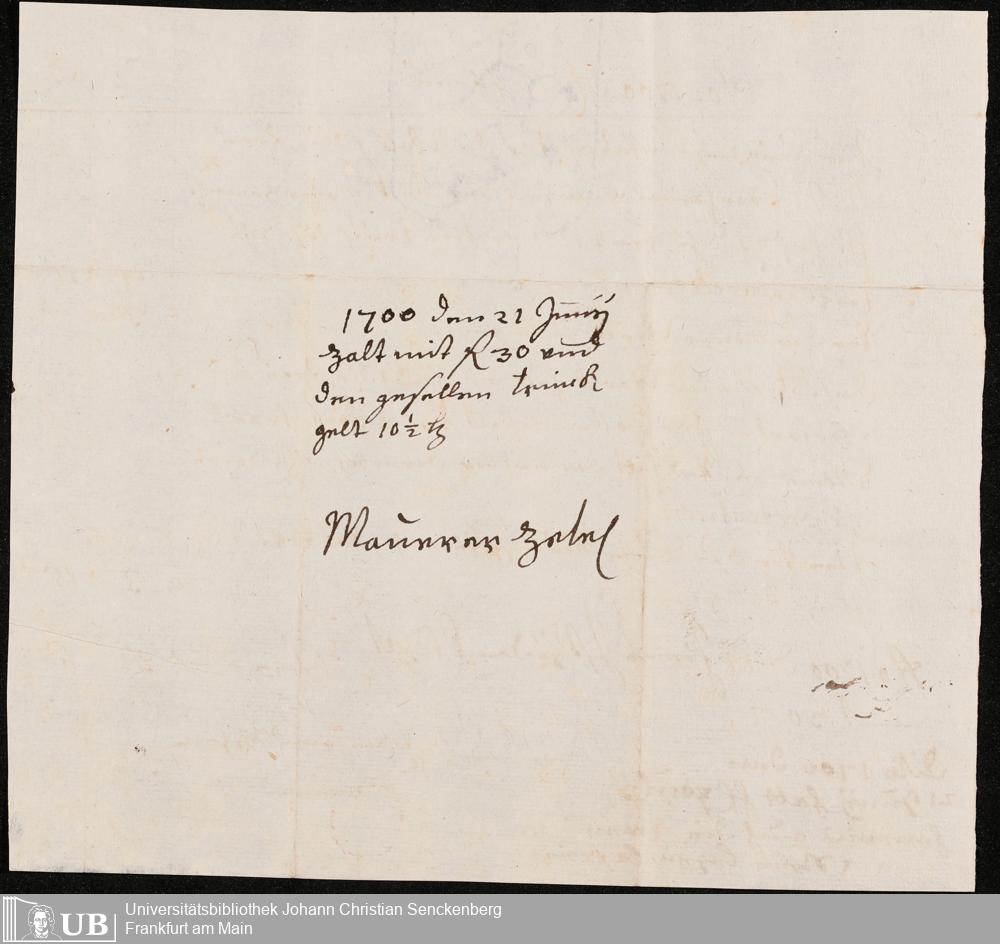 1700 den 21 Junÿ
zalt mit fl 30 und
den gesellen trinck
gelt 10 1/2 bz
Maurer Zetel
UB
Universitätsbibliothek Johann Christian Senckenberg
Frankfurt am Main